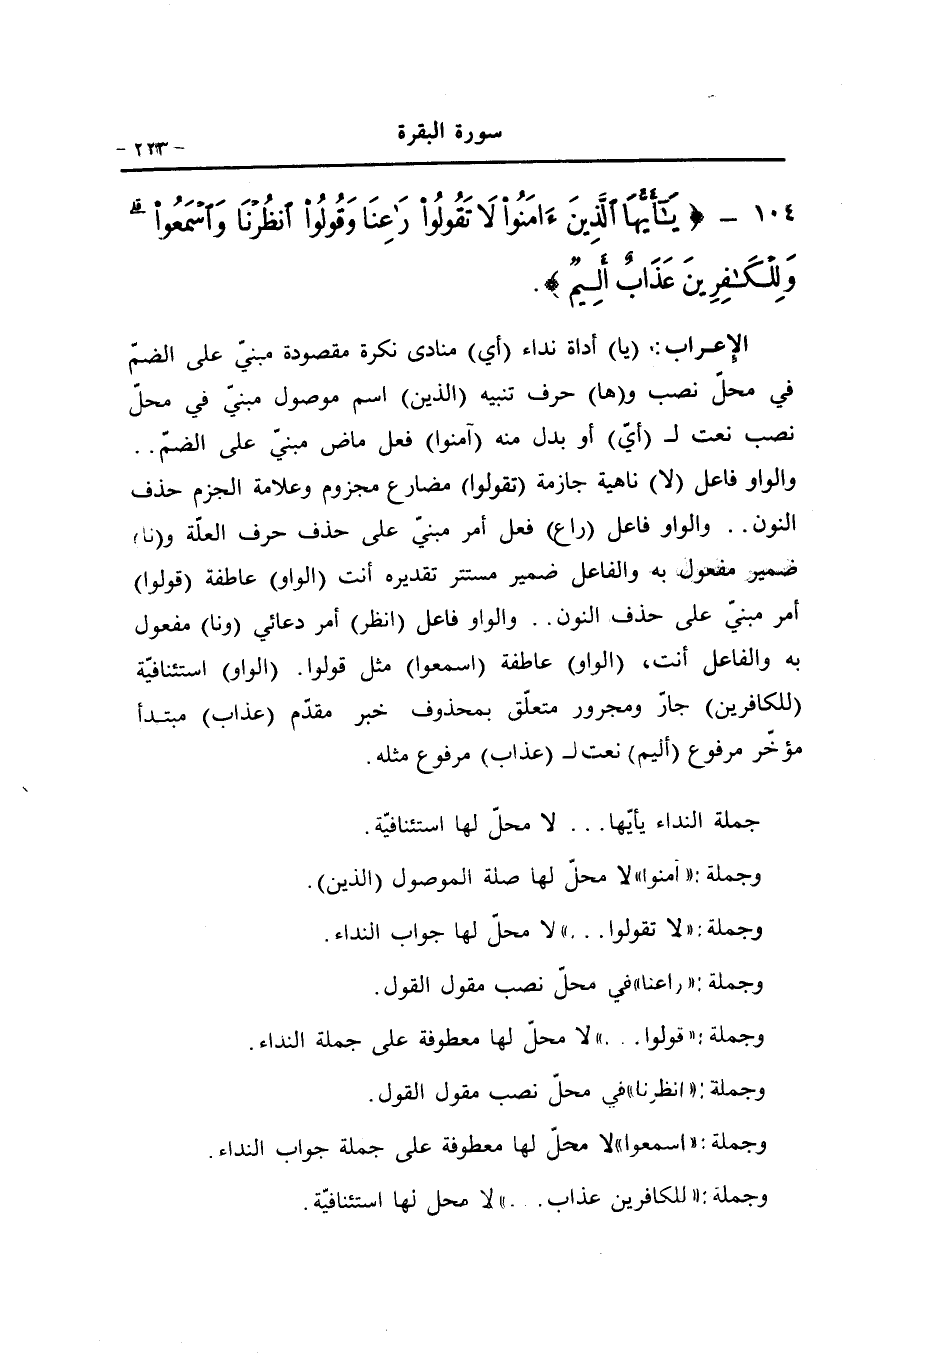 سورة البقرة
- ٢٢٣ -
١٠٤ - ﴿ يَـٰٓأَيُّهَا ٱلَّذِينَ ءَامَنُوا۟ لَا تَقُولُوا۟ رَٰعِنَا وَقُولُوا۟ ٱنظُرْنَا وَٱسْمَعُوا۟ ۗ
وَلِلْكَـٰفِرِينَ عَذَابٌ أَلِيمٌ ﴾.
الإعـراب: (يا) أداة نداء (أي) منادى نكرة مقصودة مبنيّ على الضمّ
في محلّ نصب و(ها) حرف تنبيه (الذين) اسم موصول مبنيّ في محلّ
نصب نعت لـ (أيّ) أو بدل منه (آمنوا) فعل ماض مبنيّ على الضمّ..
والواو فاعل (لا) ناهية جازمة (تقولوا) مضارع مجزوم وعلامة الجزم حذف
النون.. والواو فاعل (راع) فعل أمر مبنيّ على حذف حرف العلّة و(نا)
ضمير مفعول به والفاعل ضمير مستتر تقديره أنت (الواو) عاطفة (قولوا)
أمر مبنيّ على حذف النون.. والواو فاعل (انظر) أمر دعائي (ونا) مفعول
به والفاعل أنت، (الواو) عاطفة (اسمعوا) مثل قولوا. (الواو) استئنافيّة
(للكافرين) جارّ ومجرور متعلّق بمحذوف خبر مقدّم (عذاب) مبتـدأ
مؤخّر مرفوع (أليم) نعت لـ (عذاب) مرفوع مثله.
جملة النداء يأيّها... لا محلّ لها استئنافيّة.
وجملة: «آمنوا» لا محلّ لها صلة الموصول (الذين).
وجملة: «لا تقولوا...» لا محلّ لها جواب النداء.
وجملة: «راعنا» في محلّ نصب مقول القول.
وجملة: «قولوا...» لا محلّ لها معطوفة على جملة النداء.
وجملة: «انظرنا» في محلّ نصب مقول القول.
وجملة: «اسمعوا» لا محلّ لها معطوفة على جملة جواب النداء.
وجملة: «للكافرين عذاب...» لا محل لها استئنافيّة.